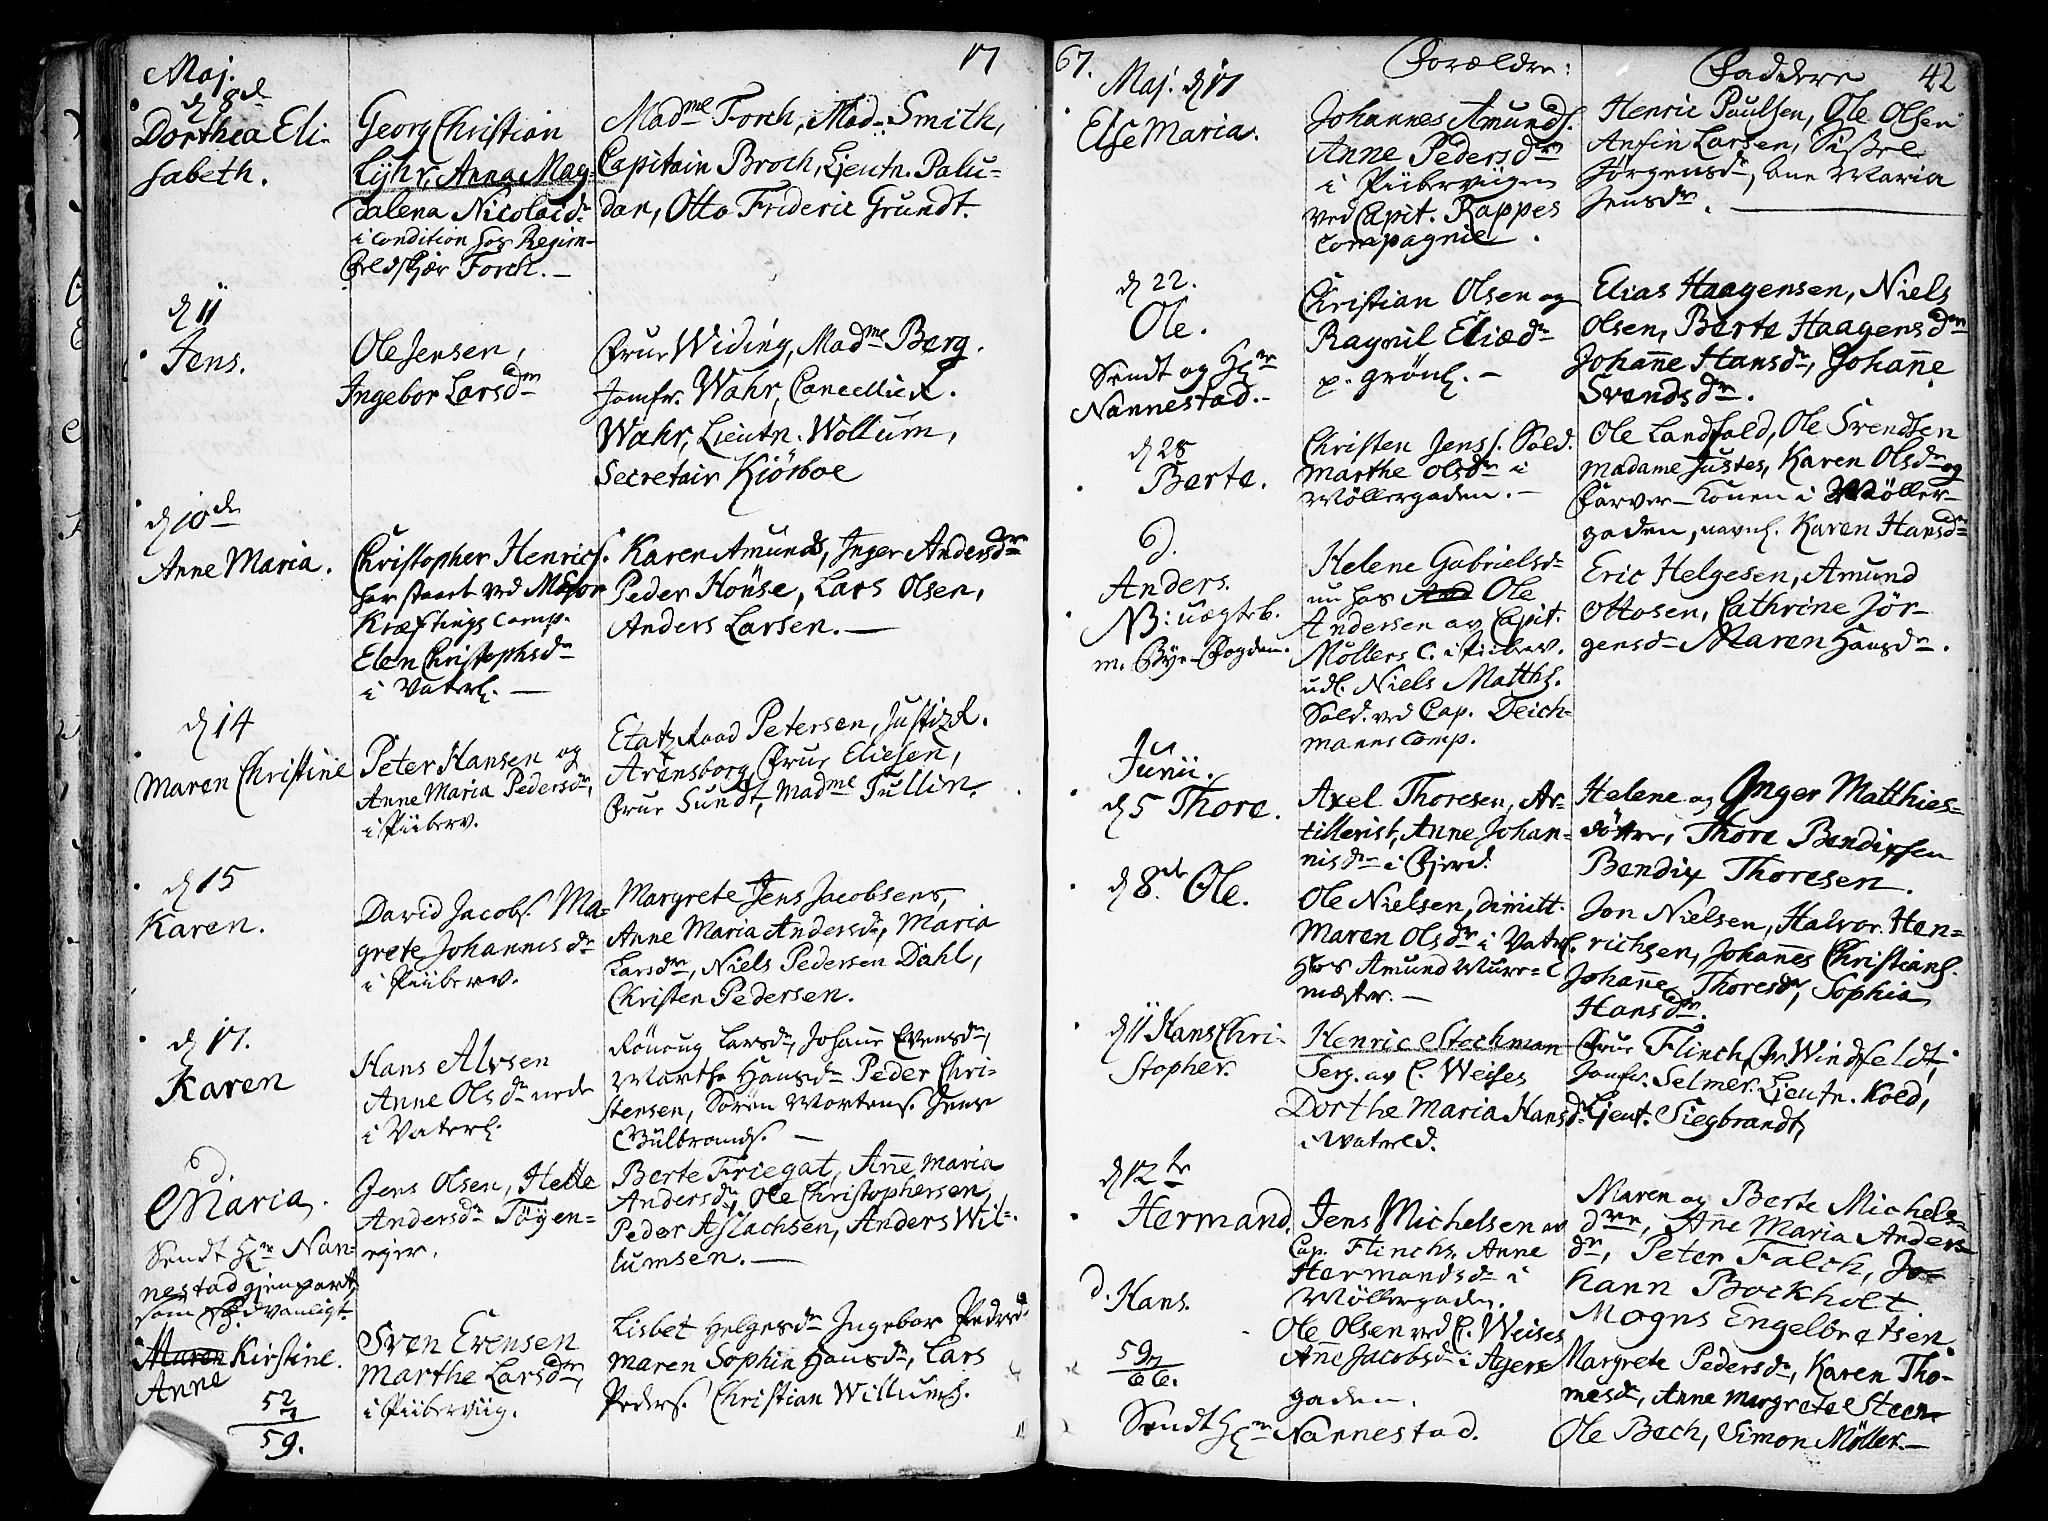 17
Maj.
d 8de
Dorthea Eli-
sabeth.
Georg Christian
Lyhr, Anna Mag-
dalena Nicolaid.
i condition hos Regim-
Feldskjær Forch. —
Madme Forch, Mad. Smith,
Capitain Broch, Lieutn. Palu-
dan, Otto Frideric Grundt.
d 11
Jens.
Ole Jensen,
Ingebor Larsdtr
Frue Widing, Madme Berg.
Jomfr. Wahr, Cancellie R.
Wahr, Lieutn. Wollum,
Secretair Kiörboe
d 10de
Anne Maria.
Christopher Henrics.
har staaet ved Major
Kræftings Comp.
Elen Christophsdr
i Vaterl. —
Karen Amunds, Inger Andersdtr
Peder Höuse, Lars Olsen,
Anders Larsen. —
d 14
Maren Christine
Peter Hansen og
Anne Maria Pedersdr,
i Piiberv.
Etatz Raad Petersen, Justiz R.
Arensborg, Frue Eliesen,
Frue Sundt, Madme Tullin.
d 15
Karen.
David Jacobs. Ma-
grete Johannisdr
i Piiberv.
Margrete Jens Jacobsens,
Anne Maria Andersdr, Maria
Larsdtr, Niels Pedersen Dahl,
Christen Pedersen.
d 17.
Karen
Hans Alvsen
Anne Olsdr nede
i Vaterl.
Rönoug Larsdr, Johanne Evensdr,
Marthe Hansdr Peder Chri-
stensen, Sören Mortens. Jens
Gulbrands. —
d.
Maria.
Sendt Hr Nan-
nestad gienpart,
som sædvanligt.
Jens Olsen, Helle
Andersdr Töyen-
ejer.
Berte Friegat, Anne Maria
Andersdr, Ole Christophersen,
Peder Aslachsen, Anders Wil-
lumsen. —
Maren Kirstine.
Anne
Sven Evensen
Marthe Larsdtr,
i Piiberviig.
Lisbet Helgesdr Ingebor Pedersd.
Maren Sophia Hansdr, Lars
Peders. Christian Willums.
52
7
59.
67.
Forældre:
Faddere
42
Maj. d 17
Else Maria.
Johannes Amunds.
Anne Pedersdtr
i Piiberviigen
ved Capit. Rappes
Compagnie.
Henric Paulsen, Ole Olsen
Anfin Larsen, Sissel
Jørgensdr, Ane Maria
Jensdr.
d 22.
Ole.
Sendt og Hr
Nannestad.-
Christian Olsen og
Ragnil Eliædr
p. Grönl. —
Elias Haagensen, Niels
Olsen, Berte Haagensdtr
Johanne Hansdr, Johanne
Svendsdr.
d 28
Berte.
Christen Jens. Sold.
Marthe Olsdr i
Möllergaden. —
Ole Landfald, Ole Svendsen
Madame Justes, Karen Olsdr og
Farver-Konen i Möller-
gaden, navnl. Karen Hansdr
d.
Anders.
NB: uægteb.
m. Bye-Fogden.
Helene Gabrielsdr
nu hos And Ole
Andersen av Capit.
Möllers C. i Piiberv.
udl. Niels Matths.
Sold. ved Cap. Deich-
manns Comp.
Eric Helgesen, Amund
Ottosen, Cathrine Jör-
gensdr Maren Hansdr.
Junii.
d 5 Thore.
Axel Thoresen, Ar-
tillerist, Anne Johan-
nisdr i Fjerd.
Helene og Inger Matthies-
döttre, Thore Bendixsen
Bendix Thoresen.
d 8de Ole.
Ole Nielsen, dimitt.
Maren Olsdr i Vaterl.
hos Amund Muur-
mæster. —
Jon Nielsen, Halvor Hen-
richsen, Johannes Christians.
Johanne Thoresdr, Sophia
Hansdtr.
d 11 Hans Chri-
stopher.
Henric Stechman
Serg. av C. Weises
Dorthe Maria Hansdr
i Waterld.
Frue Flinch, Fr. Windfeldt,
Jomfr. Selmer. Lieutn. Kold,
Lieut. Siegbrandt,
d 12te
Hermand.
Jens Michelsen av
Cap. Flinchs, Anne
Hermandsdr i
Möllergaden.
Maren og Berte Michels-
dtre, Anne Maria Anders-
dr, Peter Falch, Jo-
hann Bockholt.
d. Hans.
Ole Olsen ved C. Weises
Ane Jacobsdr i Agers
gaden.
Mogns Engelbretsen
Margrete Pedersdr, Karen Tho-
mesdr, Anne Margrete Steen
Ole Bech, Simon Möller. —
59
7
66.
Sendt Hr Nannestad.